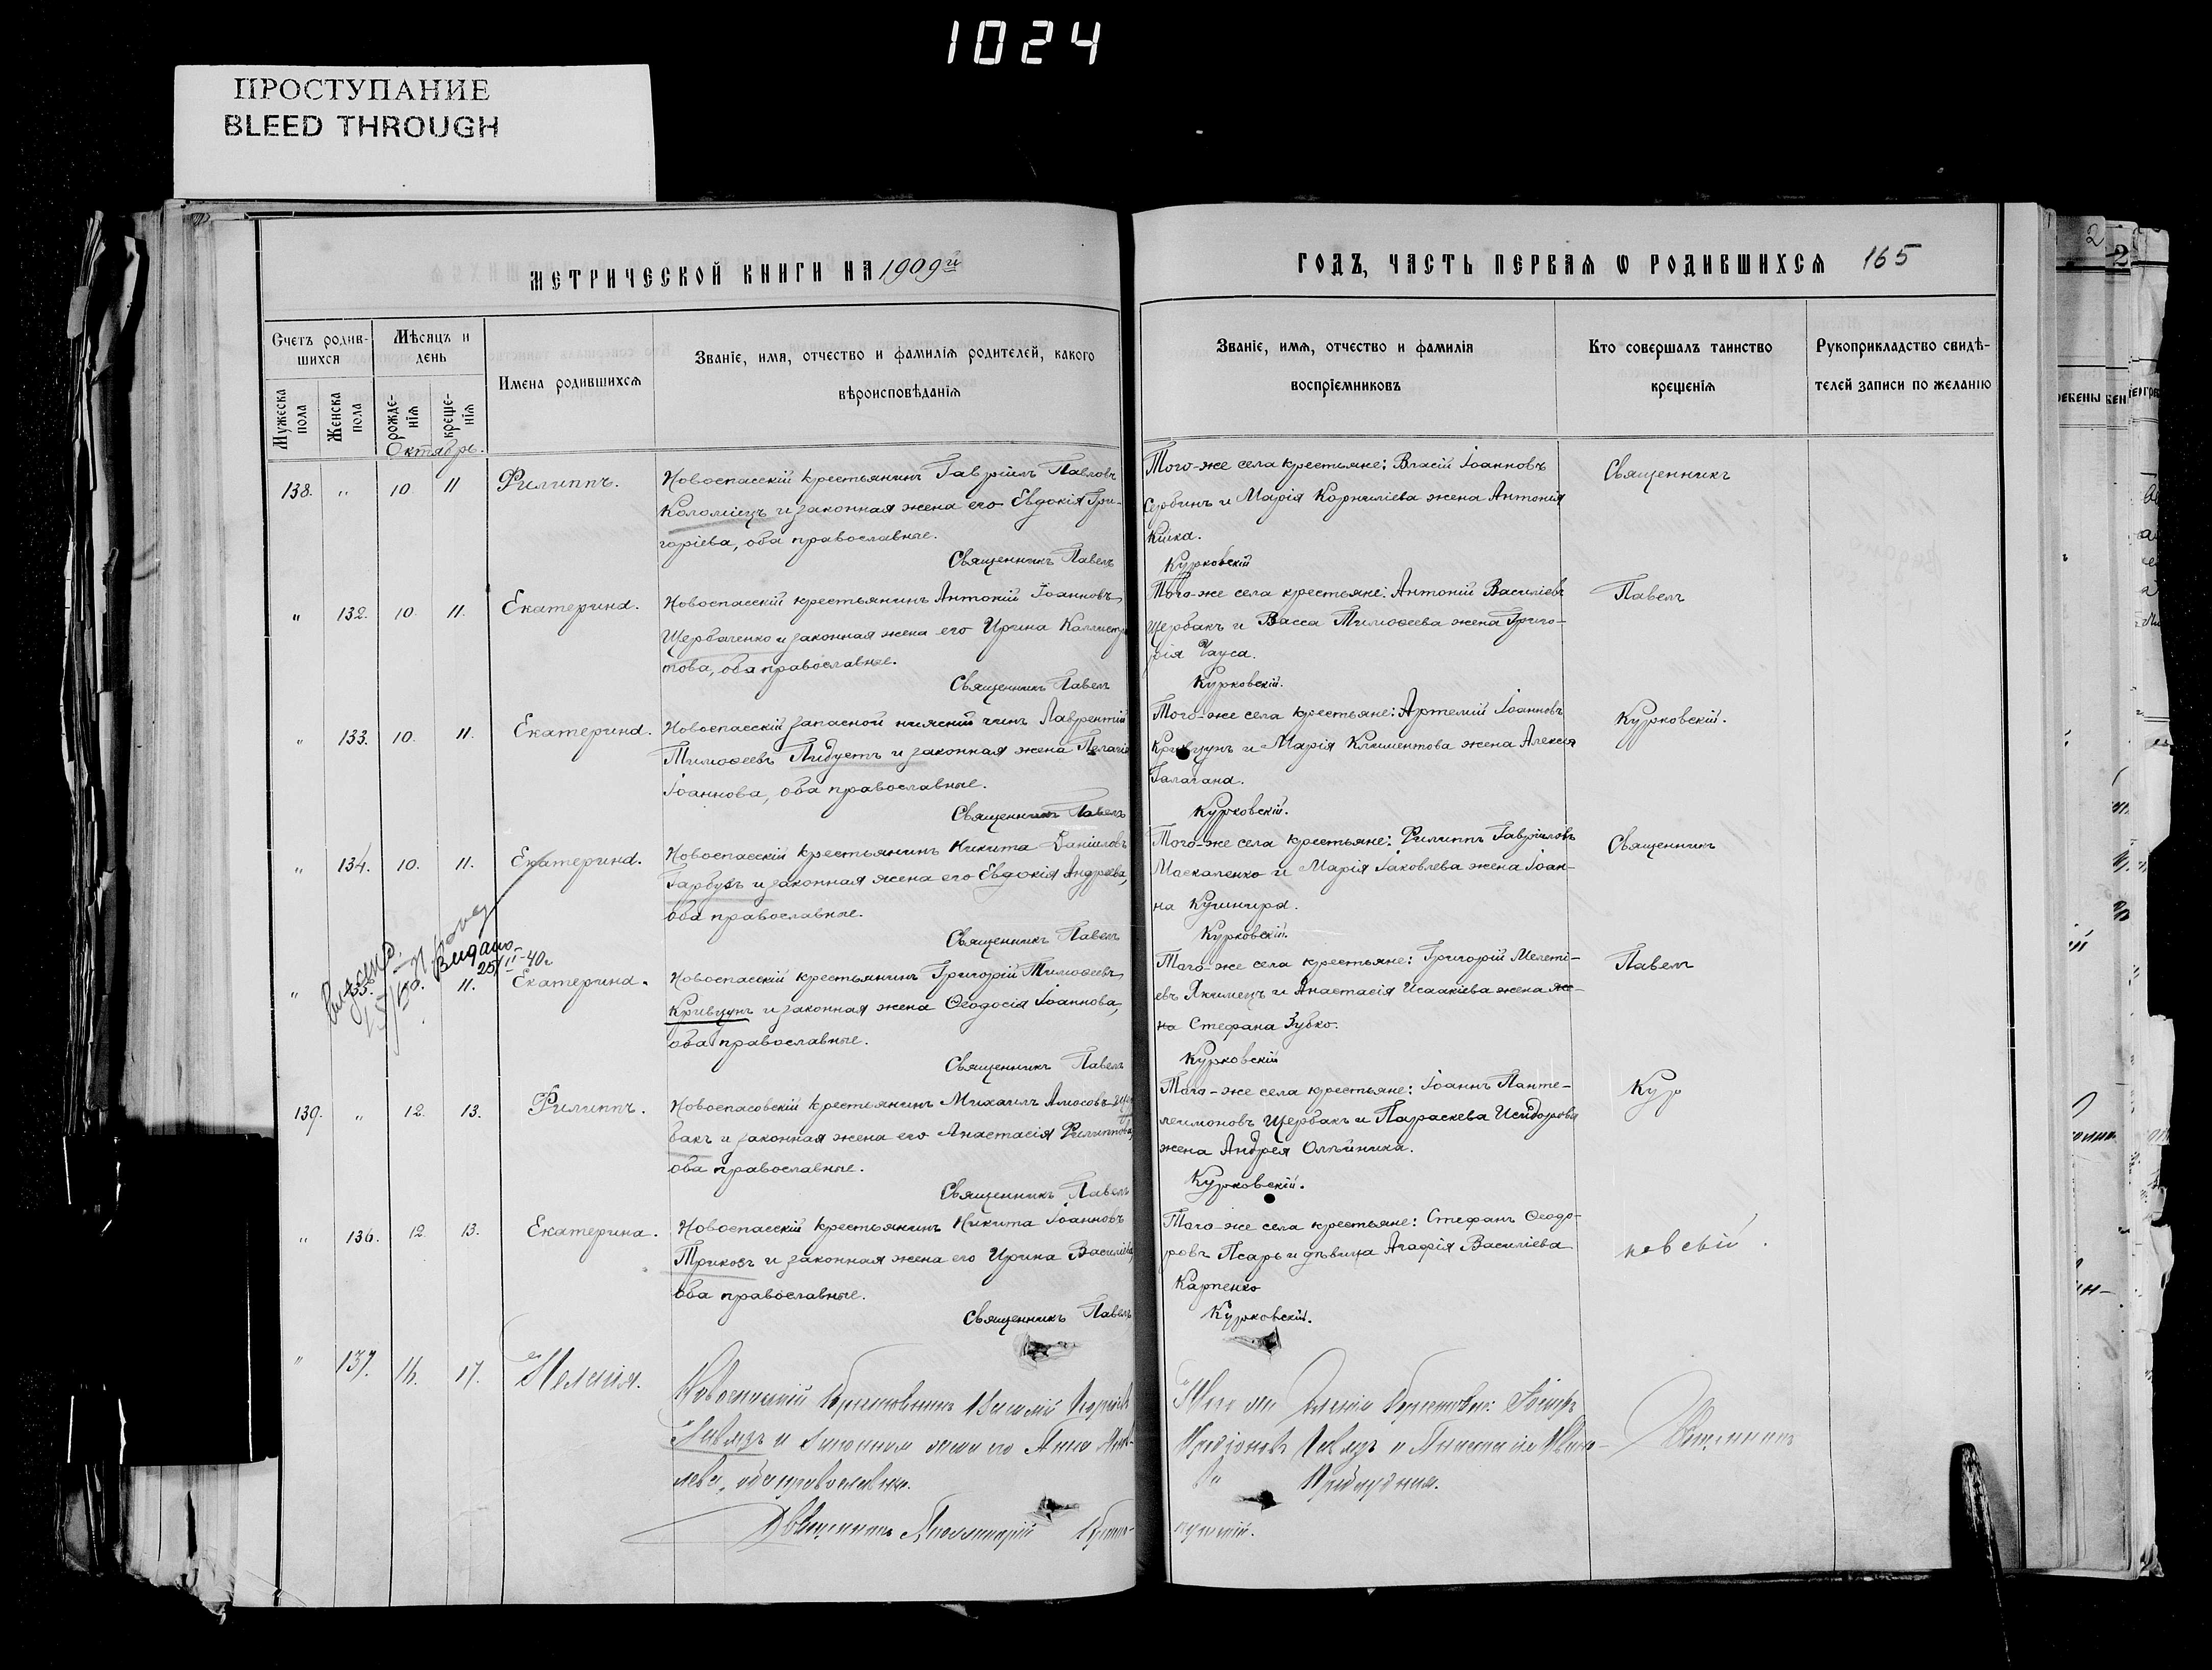 1024
ПРОСТУПАНИЕ
BLEED THROUGH
МЕТРИЧЕСКОЙ КНИГИ НА 1909й
ГОДЪ, ЧАСТЬ ПЕРВАЯ Ѡ РОДИВШИХСЯ 165
Счетъ родив-
шихся
Мѣсяцъ и
день
Имена родившихся
Званіе, имя, отчество и фамилія родителей, какого
вѣроисповѣданія
Мужеска
пола
Женска
пола
рожде-
нія
креще-
нія
Званіе, имя, отчество и фамилія
воспріемниковъ
Кто совершалъ таинство
крещенія
Рукоприкладство свидѣ-
телей записи по желанію
Октябрь.
138. " 10. 11 Филиппъ.
Новоспасскій крестьянинъ Гавріилъ Павловъ
Коломіецъ и законная жена его Евдокія Гри-
горіева, оба православные.
Священникъ Павелъ
Того-же села крестьяне: Власій Іоанновъ
Сербинъ и Марія Корниліева жена Антонія
Кійка.
Курковскій
Священникъ
" 132. 10. 11. Екатерина.
Новоспасскій крестьянинъ Антоній Іоанновъ
Щербаченко и законная жена его Ирина Каллистра
това, оба православные.
Священникъ Павелъ
Того-же села крестьяне: Антоній Василіевъ
Щербакъ и Васса Тимоѳеева жена Григо-
рія Чауса.
Курковскій.
Павелъ
" 133. 10. 11. Екатерина.
Новоспасскій запасной нижній чинъ Лаврентій
Тимоѳеевъ Пидустъ и законная жена Пелагія
Іоаннова, оба православные.
Священникъ Павелъ
Того-же села крестьяне: Артемій Іоанновъ
Кривцунъ и Марія Климентова жена Алексія
Галагана.
Курковскій.
Курковскій.
" 134. 10. 11. Екатерина.
Новоспасскій крестьянинъ Никита Даніиловъ
Гарбузъ и законная жена его Евдокія Андреева,
оба православные.
Священникъ Павелъ
Того-же села крестьяне: Филиппъ Гавріиловъ
Маскаленко и Марія Іаковлева жена Іоан-
на Кушнира.
Курковскій.
Священникъ
Видано
25/II-40г
" 11. Екатерина.
Новоспасскій крестьянинъ Григорій Тимоѳеевъ
Кривцунъ и законная жена Ѳеодосія Іоаннова,
оба православные.
Священникъ Павелъ
Того-же села крестьяне: Григорій Мелеті-
евъ Якимецъ и Анастасія Исаакіева жена же-
на Стефана Зубко.
Курковскій
Павелъ
139. " 12. 13. Филиппъ.
Новоспасовскій крестьянинъ Михаилъ Амосовъ Щер
бакъ и законная жена его Анастасія Филиппова,
оба православные.
Священникъ Павелъ
Того-же села крестьяне: Іоаннъ Панте-
леимоновъ Щербакъ и Параскева Исидорова
жена Андрея Олѣйника.
Курковскій.
Кур
" 136. 12. 13. Екатерина.
Новоспасскій крестьянинъ Никита Іоанновъ
Триковъ и законная жена его Ирина Василіева,
оба православные.
Священникъ Павелъ
Того-же села крестьяне: Стефанъ Ѳеодо-
ровъ Псарь и дѣвица Агафія Василіева
Карпенко
Курковскій.
ковскій.
" 137. 16. 17.
и законная жена его Анна
оба православные.
Священникъ
Священникъ